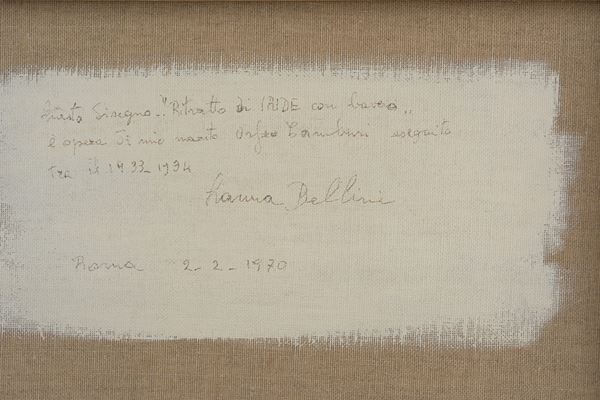 Questo Disegno.. "Ritratto di IAIDE con bavero,,
è opera di mio marito Orfeo Tamburi, eseguito
tra il 1933-1934
Bellini
Roma 2-2-1970